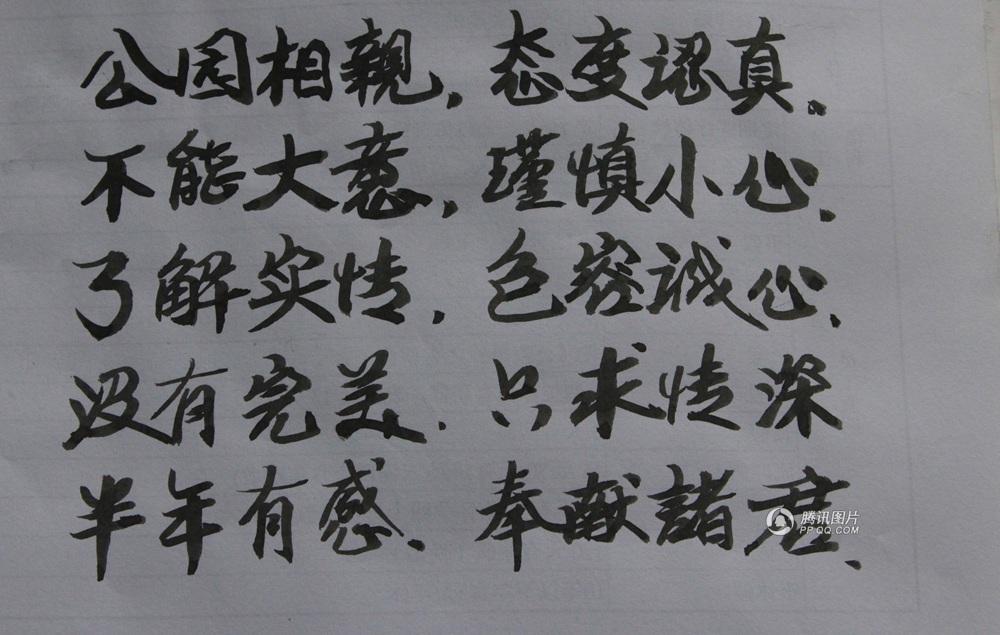 公园相親，态度認真。
不能大意，瑾慎小心。
了解实情，包容诚心。
没有完美．只求情深
半年有感、奉献諸君、
腾讯图片
PP.QQ.COM